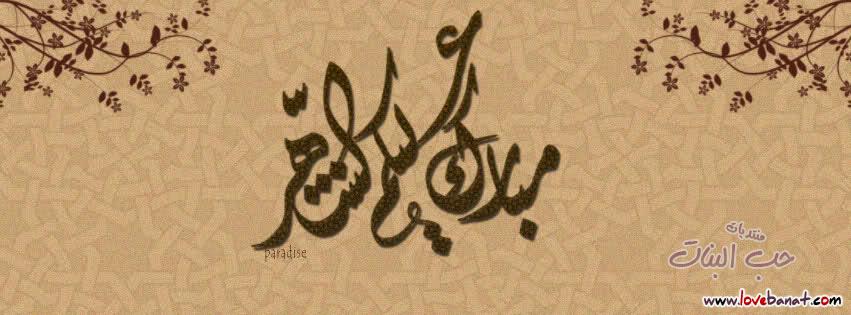 مبارك عليكم الشهر
paradise
منتديات
حب البنات
www.lovebanat.com